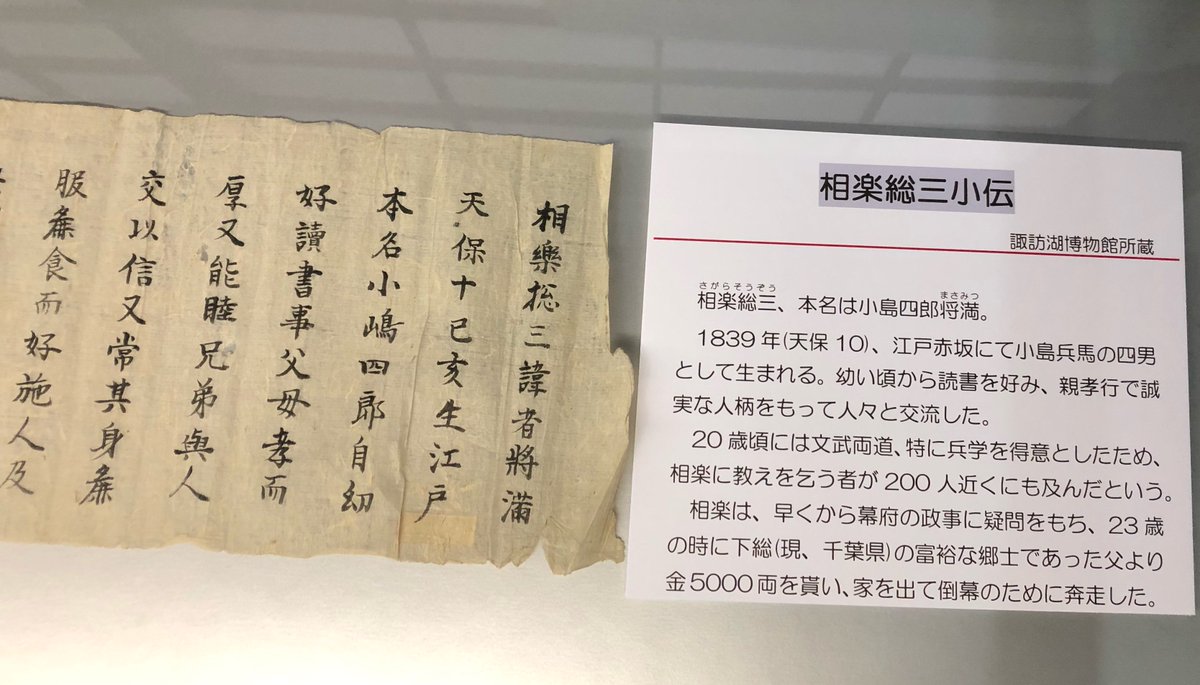 相樂捴三諱者將滿
天保十己亥生江戸
本名小嶋四郎自幼
好讀書事父母孝而
厚又能睦兄弟與人
交以信又常其身麁
服麁食而好施人及
相楽総三小伝
諏訪湖博物館所蔵
さがらそうぞう まさみつ
相楽総三、本名は小島四郎将満。
1839年(天保10)、江戸赤坂にて小島兵馬の四男
として生まれる。幼い頃から読書を好み、親孝行で誠
実な人柄をもって人々と交流した。
20歳頃には文武両道、特に兵学を得意としたため、
相楽に教えを乞う者が200人近くにも及んだという。
相楽は、早くから幕府の政事に疑問をもち、23歳
の時に下総(現、千葉県)の富裕な郷士であった父より
金5000両を貰い、家を出て倒幕のために奔走した。